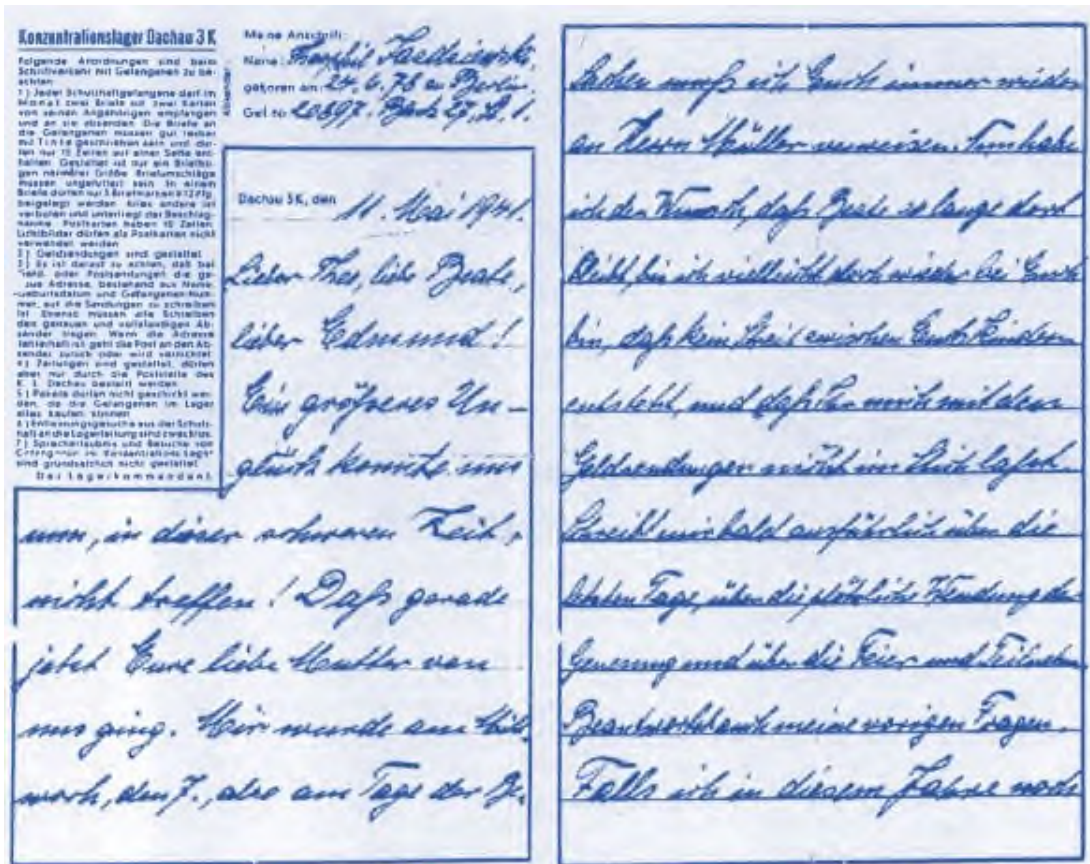 Konzentrationslager Dachau 3 K
Folgende Anordnungen sind beim
Schriftverkehr mit Gefangenen zu be-
achten:
1.) Jeder Schutzhaftgefangene darf im
Monat zwei Briefe oder zwei Karten
von seinen Angehörigen empfangen
und an sie absenden. Die Briefe an
die Gefangenen müssen gut lesbar
mit Tinte geschrieben sein und dür-
fen nur 15 Zeilen auf einer Seite ent-
halten. Gestattet ist nur ein Briefbo-
gen normaler Größe. Briefumschläge
müssen ungefüttert sein. In einem
Briefe dürfen nur 5 Briefmarken à 12 Pfg.
beigelegt werden. Alles andere ist
verboten und unterliegt der Beschlag-
nahme. Postkarten haben 10 Zeilen.
Lichtbilder dürfen als Postkarten nicht
verwendet werden.
2.) Geldsendungen sind gestattet.
3.) Es ist darauf zu achten, daß bei
Geld- oder Postsendungen die ge-
naue Adresse, bestehend aus Name,
Geburtsdatum und Gefangenen-Num-
mer, auf die Sendungen zu schreiben
ist. Ebenso müssen alle Schreiben
den genauen und vollständigen Ab-
sender tragen. Wenn die Adresse
fehlerhaft ist, geht die Post an den Ab-
sender zurück oder wird vernichtet.
4.) Zeitungen sind gestattet, dürfen
aber nur durch die Poststelle des
K. L. Dachau bestellt werden.
5.) Pakete dürfen nicht geschickt wer-
den, da die Gefangenen im Lager
alles kaufen können.
6.) Entlassungsgesuche aus der Schutz-
haft an die Lagerleitung sind zwecklos.
7.) Sprecherlaubnis und Besuche von
Gefangenen im Konzentrations-Lager
sind grundsätzlich nicht gestattet.
Der Lagerkommandant.
Absender
Meine Anschrift:
Name:
geboren am: 24. 6. 78 in Berlin.
Gef. Nr. 20697. Block 27,
Dachau 3 K, den 11. Mai 1941.
Lieber Theo, liebe Beate,
lieber Edmund!
Ein größeres Un-
glück konnte uns
nun, in dieser schweren Zeit,
nicht treffen! Daß gerade
jetzt Eure liebe Mutter von
uns ging. Mir wurde am Mitt-
woch, den 7., also am Tage der Be-
Sachen muß ich Euch immer wieder
an Herrn Müller verweisen. Nun habe
ich den Wunsch, daß Beate so lange dort
bleibt, bis ich vielleicht doch wieder bei Euch
bin, daß kein Streit zwischen Euch Kindern
entsteht, und daß Ihr mich mit den
Geldsendungen nicht im Stich laßt.
Schreibt mir bald ausführlich über die
letzten Tage, über die plötzliche Wendung der
Genesung und über die Feier und
Beantwortet auch meine vorigen Fragen.
Falls ich in diesem Jahre noch